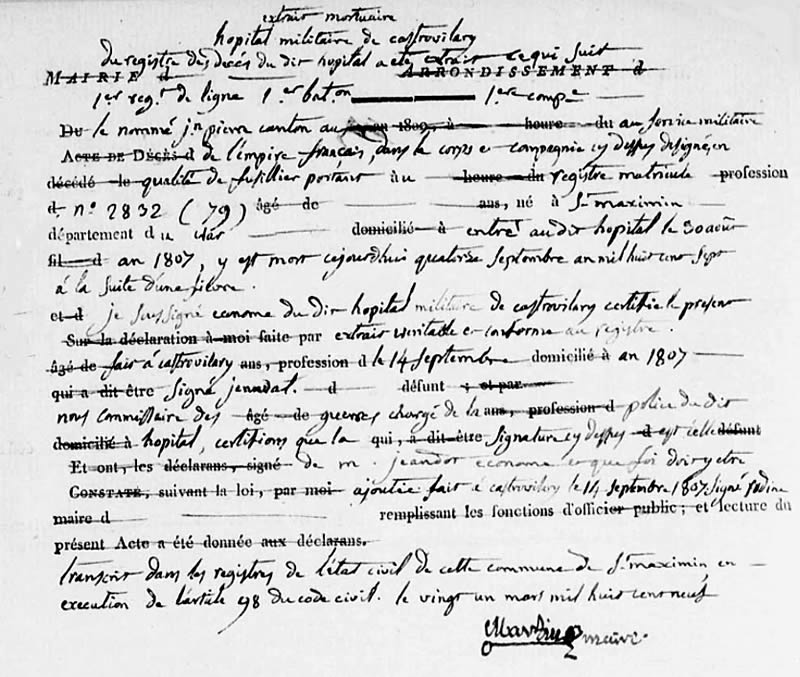 extrait mortuaire
hopital militaire de castrovilary
du registre des décés du dit hopital a eté extrait ce qui suit
MAIRIE d ARRONDISSEMENT d
1er regt de ligne 1er baton 1ere compe
Du le nommé jn pierre canton au an 1809, à heure du au service militaire
ACTE DE DÉCÈS d de l'empire français, dans le corps et compagnie cy dessus designés, en
décédé le qualité de fusillier portant au heure du registre matricule profession
d. n° 2832 (79) âgé de ans, né à St maximin
département du var domicilié à entré au dit hopital le 30 août
fil d an 1807, y est mort cejourdhui quatorze septembre an mil huit cent sept
à la suite d'une fievre.
et d je sussigné econome du dit hopital militaire de castrovilary certifie le present
Sur la déclaration à moi faite par extrait veritable et conforme au registre.
âgé de fait à castrovilary ans, profession d le 14 septembre domicilié à an 1807
qui a dit être signé jeandat. d défunt ; et par
nous commissaire des âgé de guerres chargé de la ans, profession d police du dit
domicilié à hopital, certifions que la qui, a dit être signature cy dessus d est celle défunt
Et ont, les déclarans, signé de m. jeandot econome et que foi doit y etre
CONSTATÉ, suivant la loi, par moi ajoutée fait à castrovilary le 14 septembre 1807 signé
maire d remplissant les fonctions d'officier public ; et lecture du
présent Acte a été donnée aux déclarans.
transcrit dans les registres de l'état civil de cette commune de St maximin en
execution de l'article 98 du code civil. le vingt un mars mil huit cent neuf
maire.